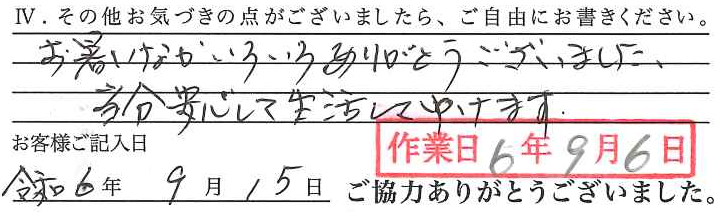 Ⅳ．その他お気づきの点がございましたら、ご自由にお書きください。
お暑いなかいろいろありがとうございました、
当分安心して生活して中けます.
お客様ご記入日
作業日6年9月6日
令和6年9月15日 ご協力ありがとうございました。